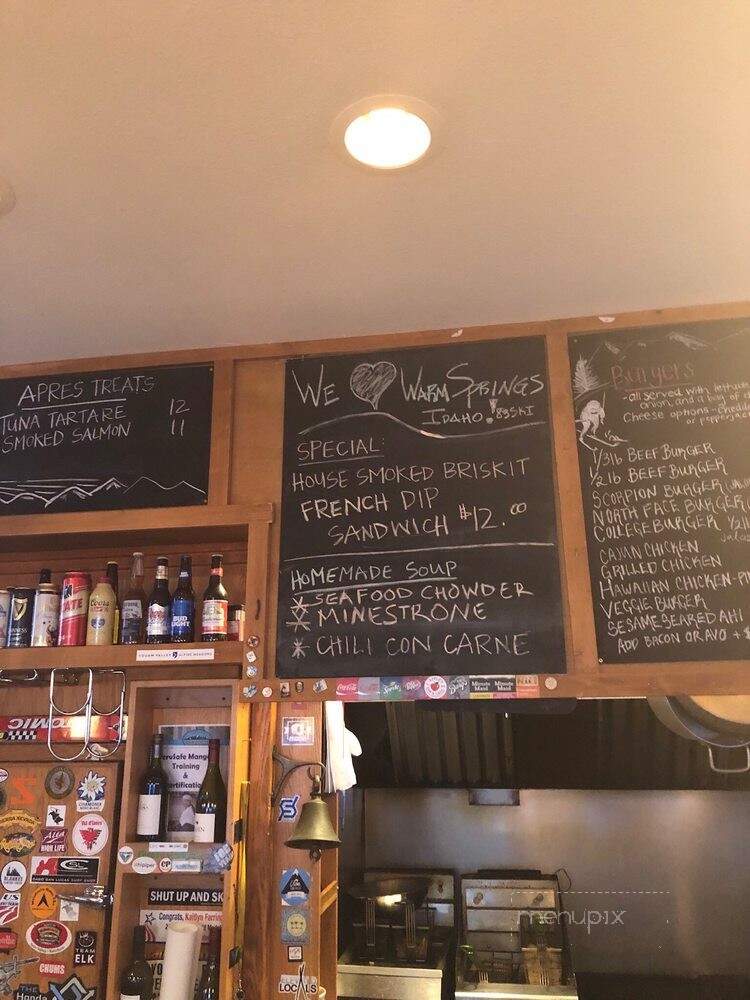 APRES TREATS
TUNA TARTARE 12
SMOKED SALMON 11
WE WARM SPRINGS
IDAHO!
SPECIAL:
HOUSE SMOKED BRISKIT
FRENCH DIP
SANDWICH $12.00
HOMEMADE SOUP
SEAFOOD CHOWDER
MINESTRONE
CHILI CON CARNE
Burgers
-all served with lettuce
onion and a bag of
Cheese options-
or pepperjack
1/3lb BEEF BURGER
1/2 lb BEEF BURGER
SCORPION BURGER
NORTH FACE BURGER
COLLEGE BURGER 1/2
CAJUN CHICKEN
GRILLED CHICKEN
HAWAIIAN CHICKEN-
VEGGIE BURGER
SESAME SEARED AHI
ADD BACON OR AVO +
BUD LIGHT
SQUAW VALLEY ALPINE MEADOWS
Coca-Cola
Minute Maid
Minute Maid
Training &
SHUT UP AND SK
Congrats, Kaitlyn Farring
CHAMONIX
HIGH LIFE
TEAM ELK
CHUMS
The Honda
LOCALS
menupix